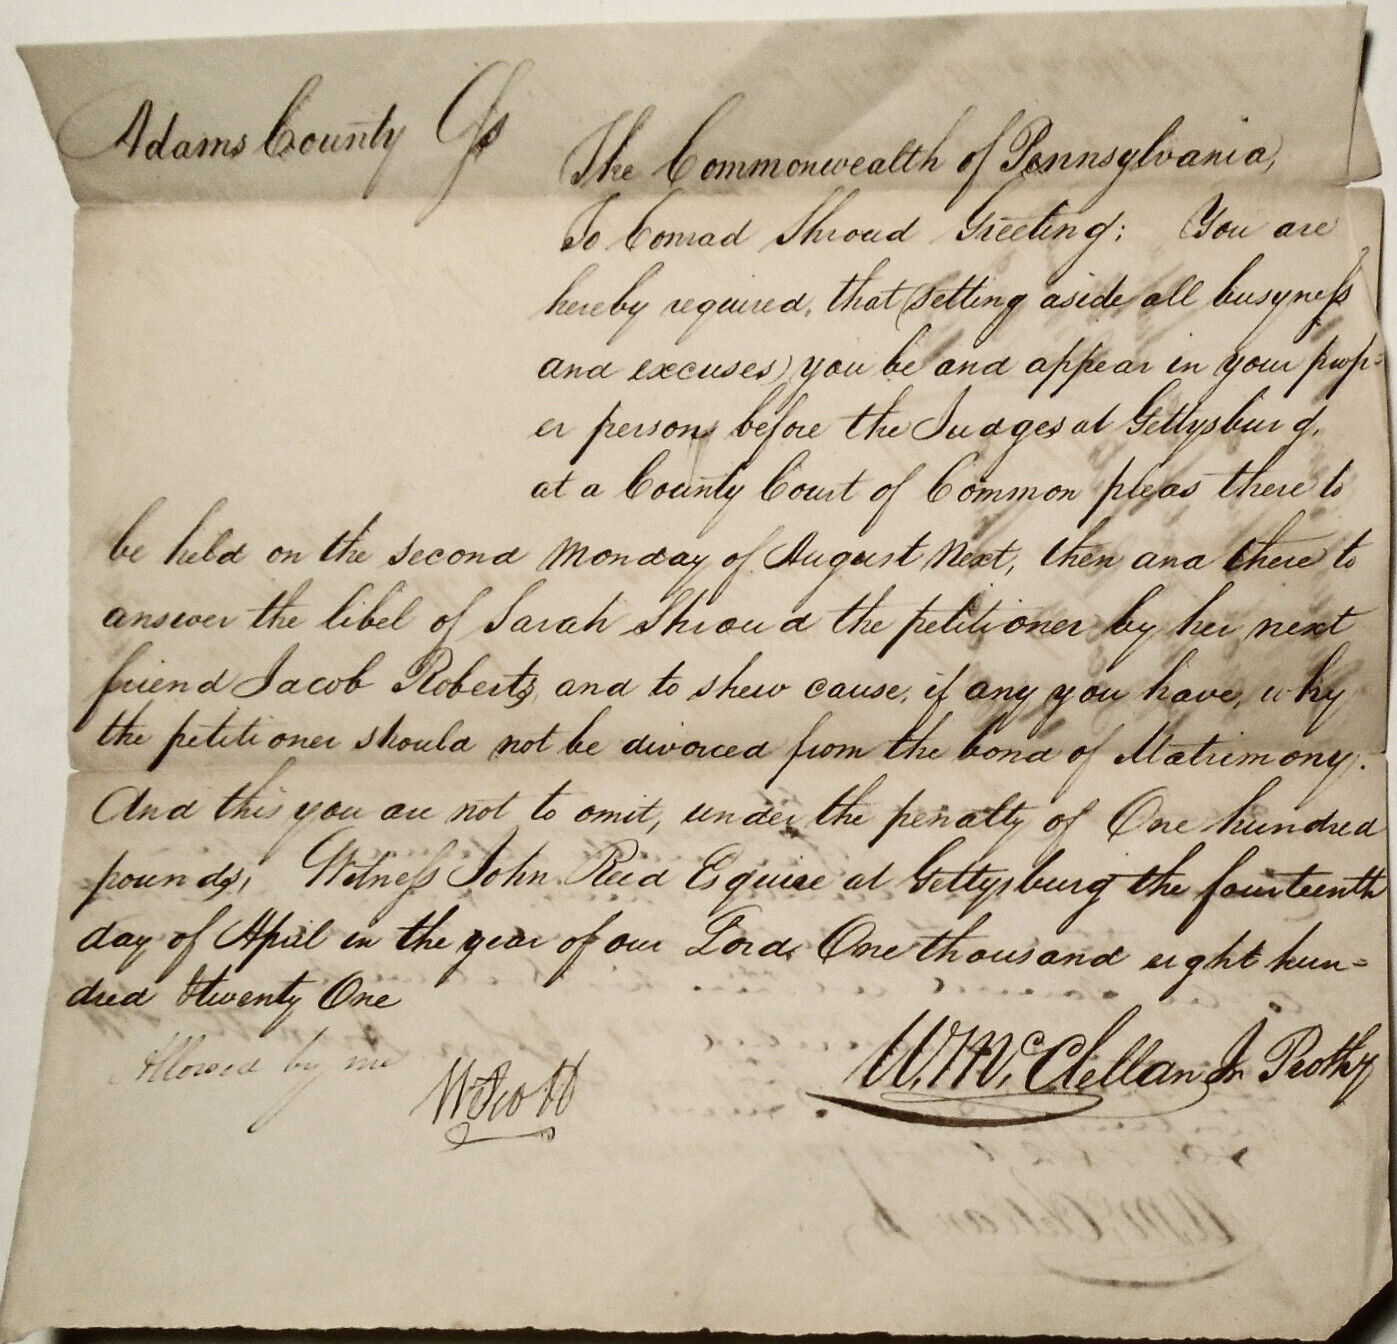 Adams County Ss
The Commonwealth of Pennsylvania,
To Conrad Shroud Greeting; You are
hereby required, that (setting aside all busyness
and excuses) you be and appear in your prop-
er persons before the Judges at Gettysburg,
at a County Court of Common pleas there to
be held on the second Monday of August Next, then and there to
answer the libel of Sarah Shroud the petitioner by her next
friend Jacob Roberts, and to shew cause, if any you have, why
the petitioner should not be divorced from the bond of Matrimony.
And this you are not to omit, under the penalty of One hundred
pounds, Witness John Reed Esquire at Gettysburg the fourteenth
day of April in the year of our Lord One thousand eight hun=
dred & twenty One
Allowed by me
W Scott
W. McClellan Jr Prothy